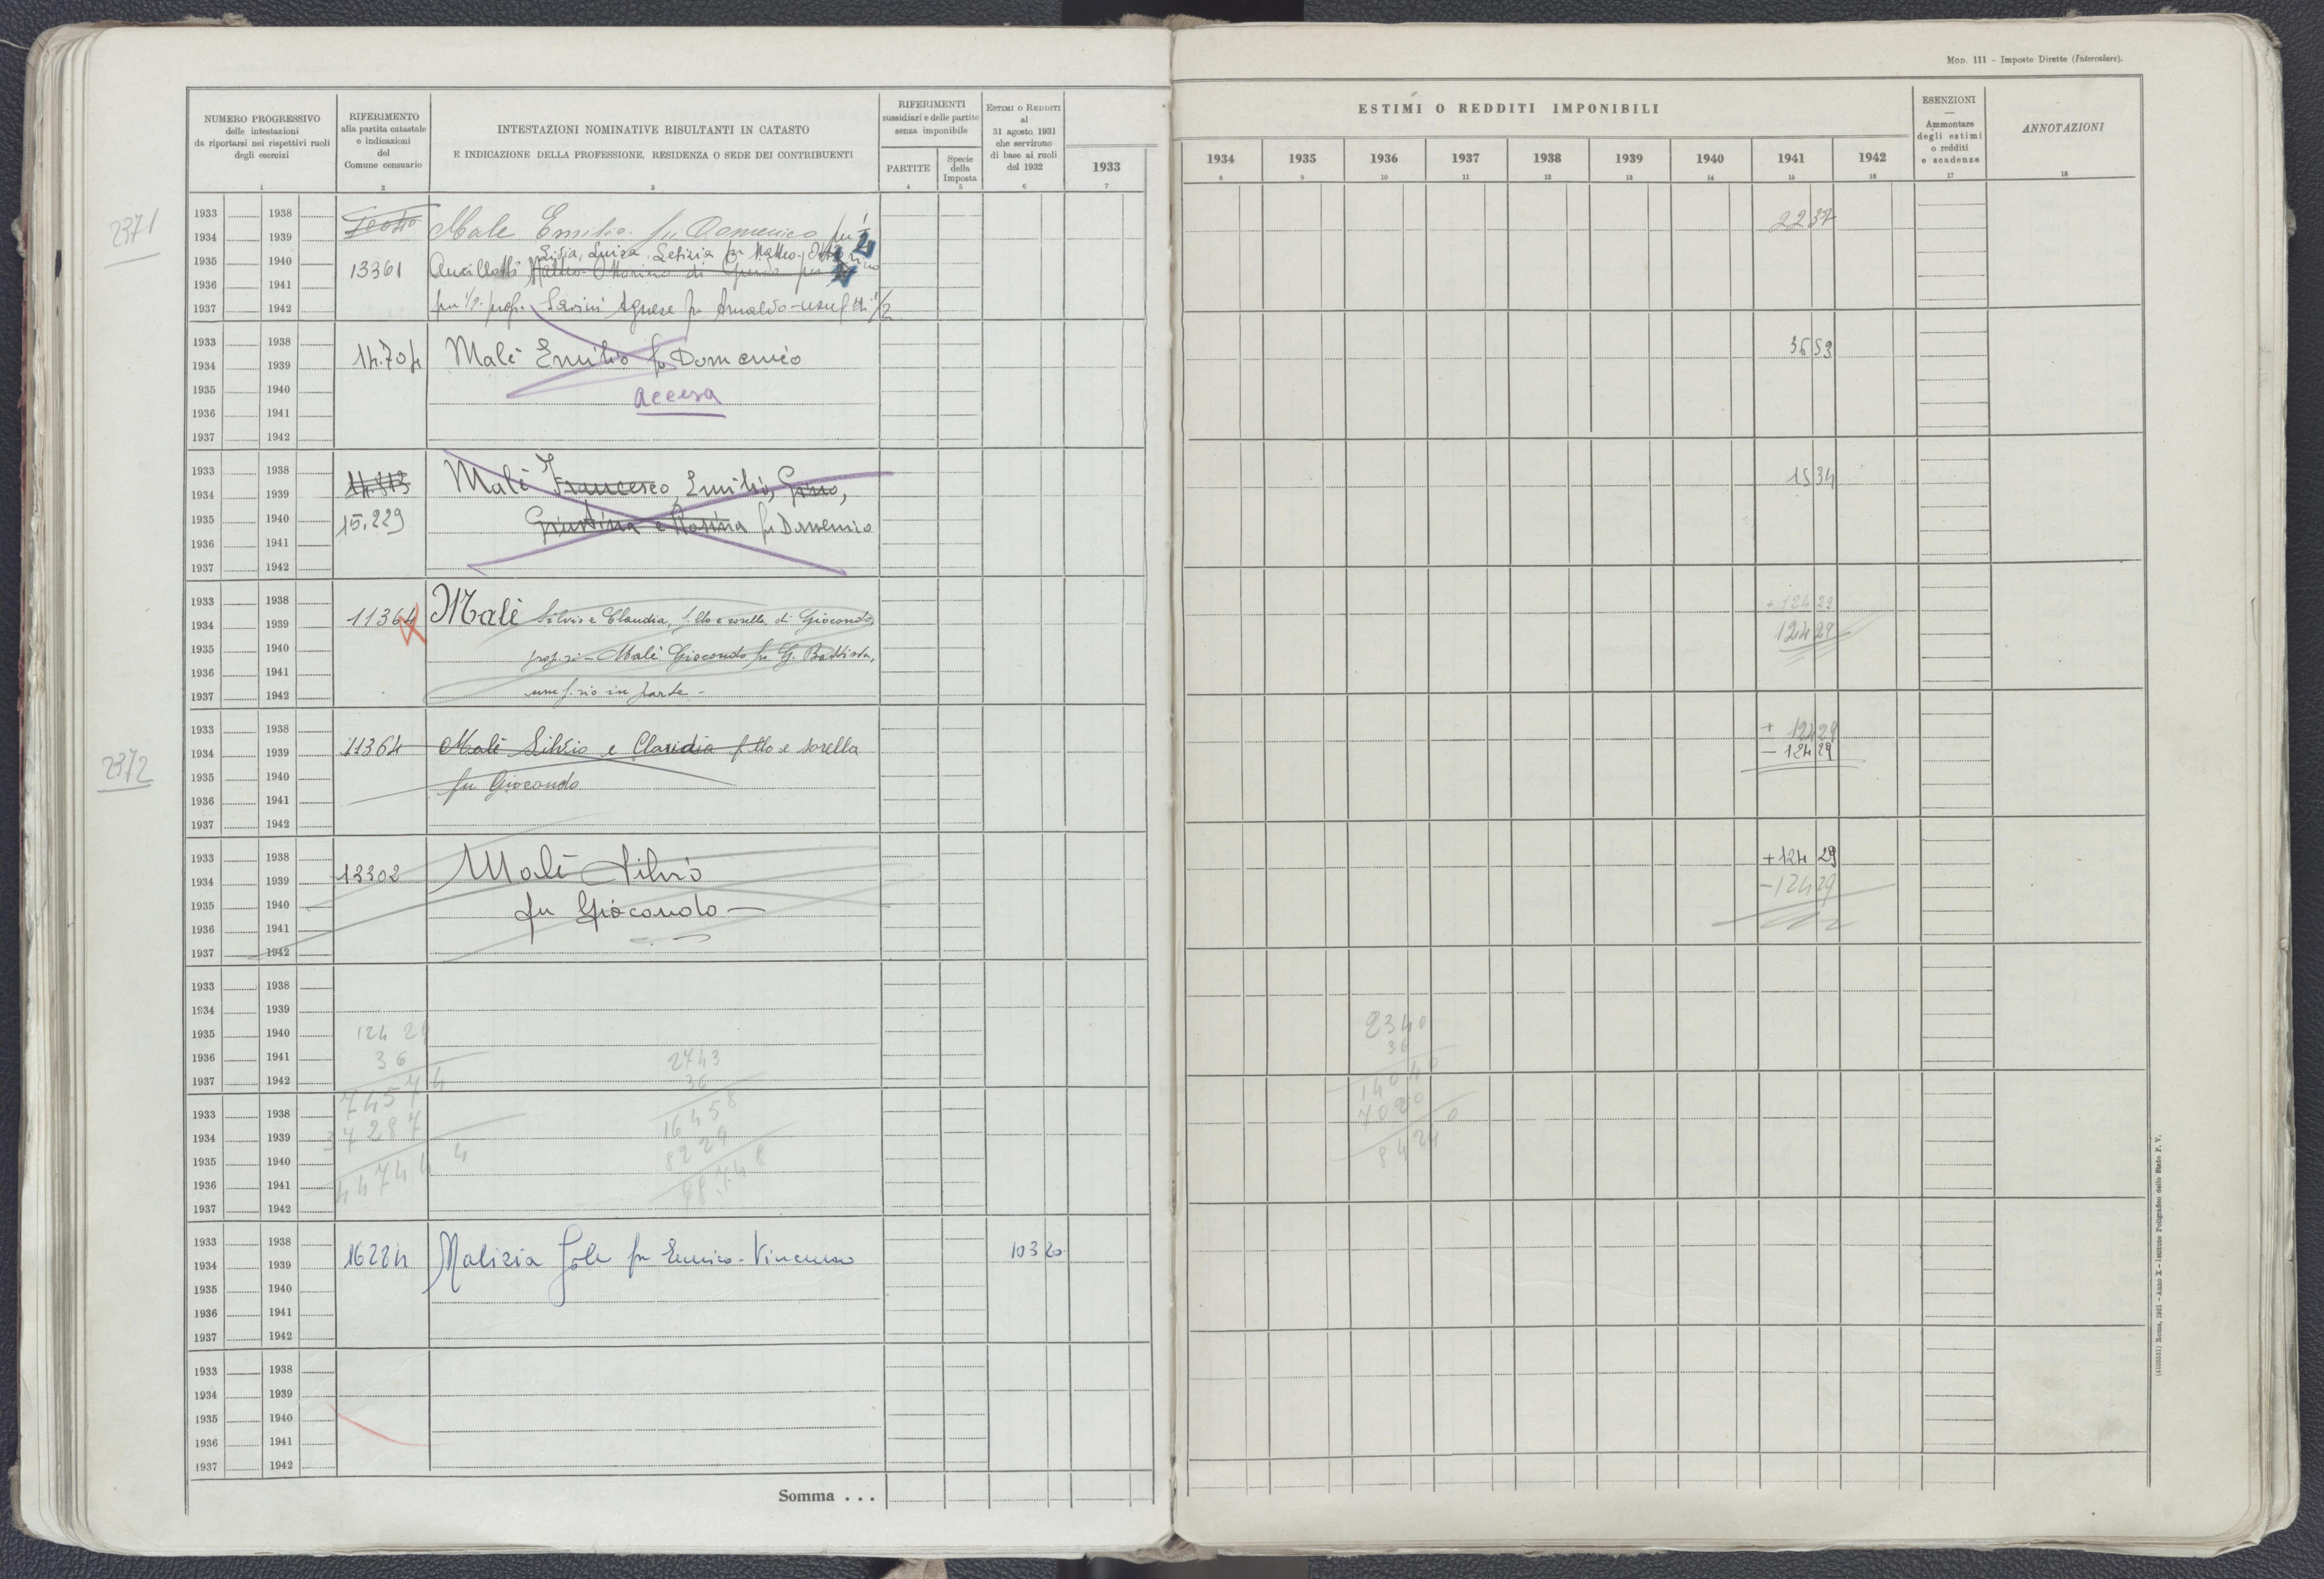 MOD. 111 - Imposte Dirette (Intercalare).
NUMERO PROGRESSIVO
delle intestazioni
da riportarsi nei rispettivi ruoli
degli esercizi
1
RIFERIMENTO
alla partita catastale
e indicazioni
del
Comune censuario
2
INTESTAZIONI NOMINATIVE RISULTANTI IN CATASTO
E INDICAZIONE DELLA PROFESSIONE, RESIDENZA O SEDE DEI CONTRIBUENTI
3
RIFERIMENTI
sussidiari e delle partite
senza imponibile
PARTITE
4
Specie
della
Imposta
5
ESTIMI O REDDITI
al
31 agosto 1931
che servirono
di base ai ruoli
del 1932
6
1933
7
ESTIMI O REDDITI IMPONIBILI
1934 1935 1936 1937 1938 1939 1940 1941 1942
8 9 10 11 12 13 14 15 16
ESENZIONI
—
Ammontare
degli estimi
o redditi
e scadenze
17
ANNOTAZIONI
18
2371
1933 1938 Male Emilio fu Domenico 2237
1934 1939 Licia, Luisa, Letizia fu Matteo
1935 1940 13361
1936 1941
1937 1942 per 1/2 propr. Savini Agnese fu Arnaldo - usuf di 1/2
1933 1938
1934 1939 14.704 Malè Emilio fu Domenico 3653
1935 1940 accesa
1936 1941
1937 1942
1933 1938
1934 1939 Malè Francesco, Emilio, Gino, 1534
1935 1940 15.229 Giustina e Rosina fu Domenico
1936 1941
1937 1942
1933 1938 + 124 29
1934 1939 11364 Malè Silvio e Claudia, f.llo e sorella, di Giocondo, 124 29
1935 1940 propr.ri - Malè Giocondo fu G. Battista,
1936 1941
1937 1942 usuf.rio in parte -
2372
1933 1938 + 124 29
1934 1939 11364 Malè Silvio e Claudia f.llo e sorella - 124 29
1935 1940 fu Giocondo
1936 1941
1937 1942
1933 1938 + 124 29
1934 1939 13302 Malè Silvio - 124 29
1935 1940 fu Giocondo -
1936 1941
1937 1942
1933 1938
1934 1939
1935 1940 124 29 2340
1936 1941 36 2743 36
1937 1942 36 14040
74574 16458 7020
1933 1938
37287 8229 84240
1934 1939
1935 1940
447444
1936 1941
1937 1942
1933 1938
1934 1939 16284 Malizia fu 103 20
1935 1940
1936 1941
1937 1942
1933 1938
1934 1939
1935 1940
1936 1941
1937 1942
Somma . . .
Roma, 1931 - Anno X - Istituto Poligrafico dello Stato P. V.